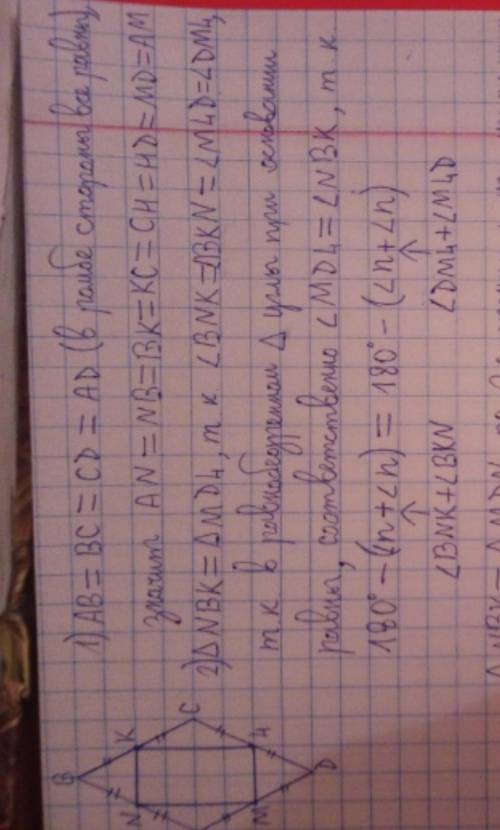 1) AB = BC = CD = AD (в ромбе стороны все равны)
значит AN = NB = BK = KC = CH = HD = MD = AM
2) ΔNBK = ΔMDH, т.к. ∠BNK = ∠BKN = ∠MHD = ∠DMH,
т.к. в равнобедренном Δ углы при основании
равны, соответственно ∠MDH = ∠NBK, т.к.
180° - (∠n + ∠n) = 180° - (∠n + ∠n)
↑ ↑
∠BNK + ∠BKN ∠DMH + ∠MHD
B
N K
C
M H
D